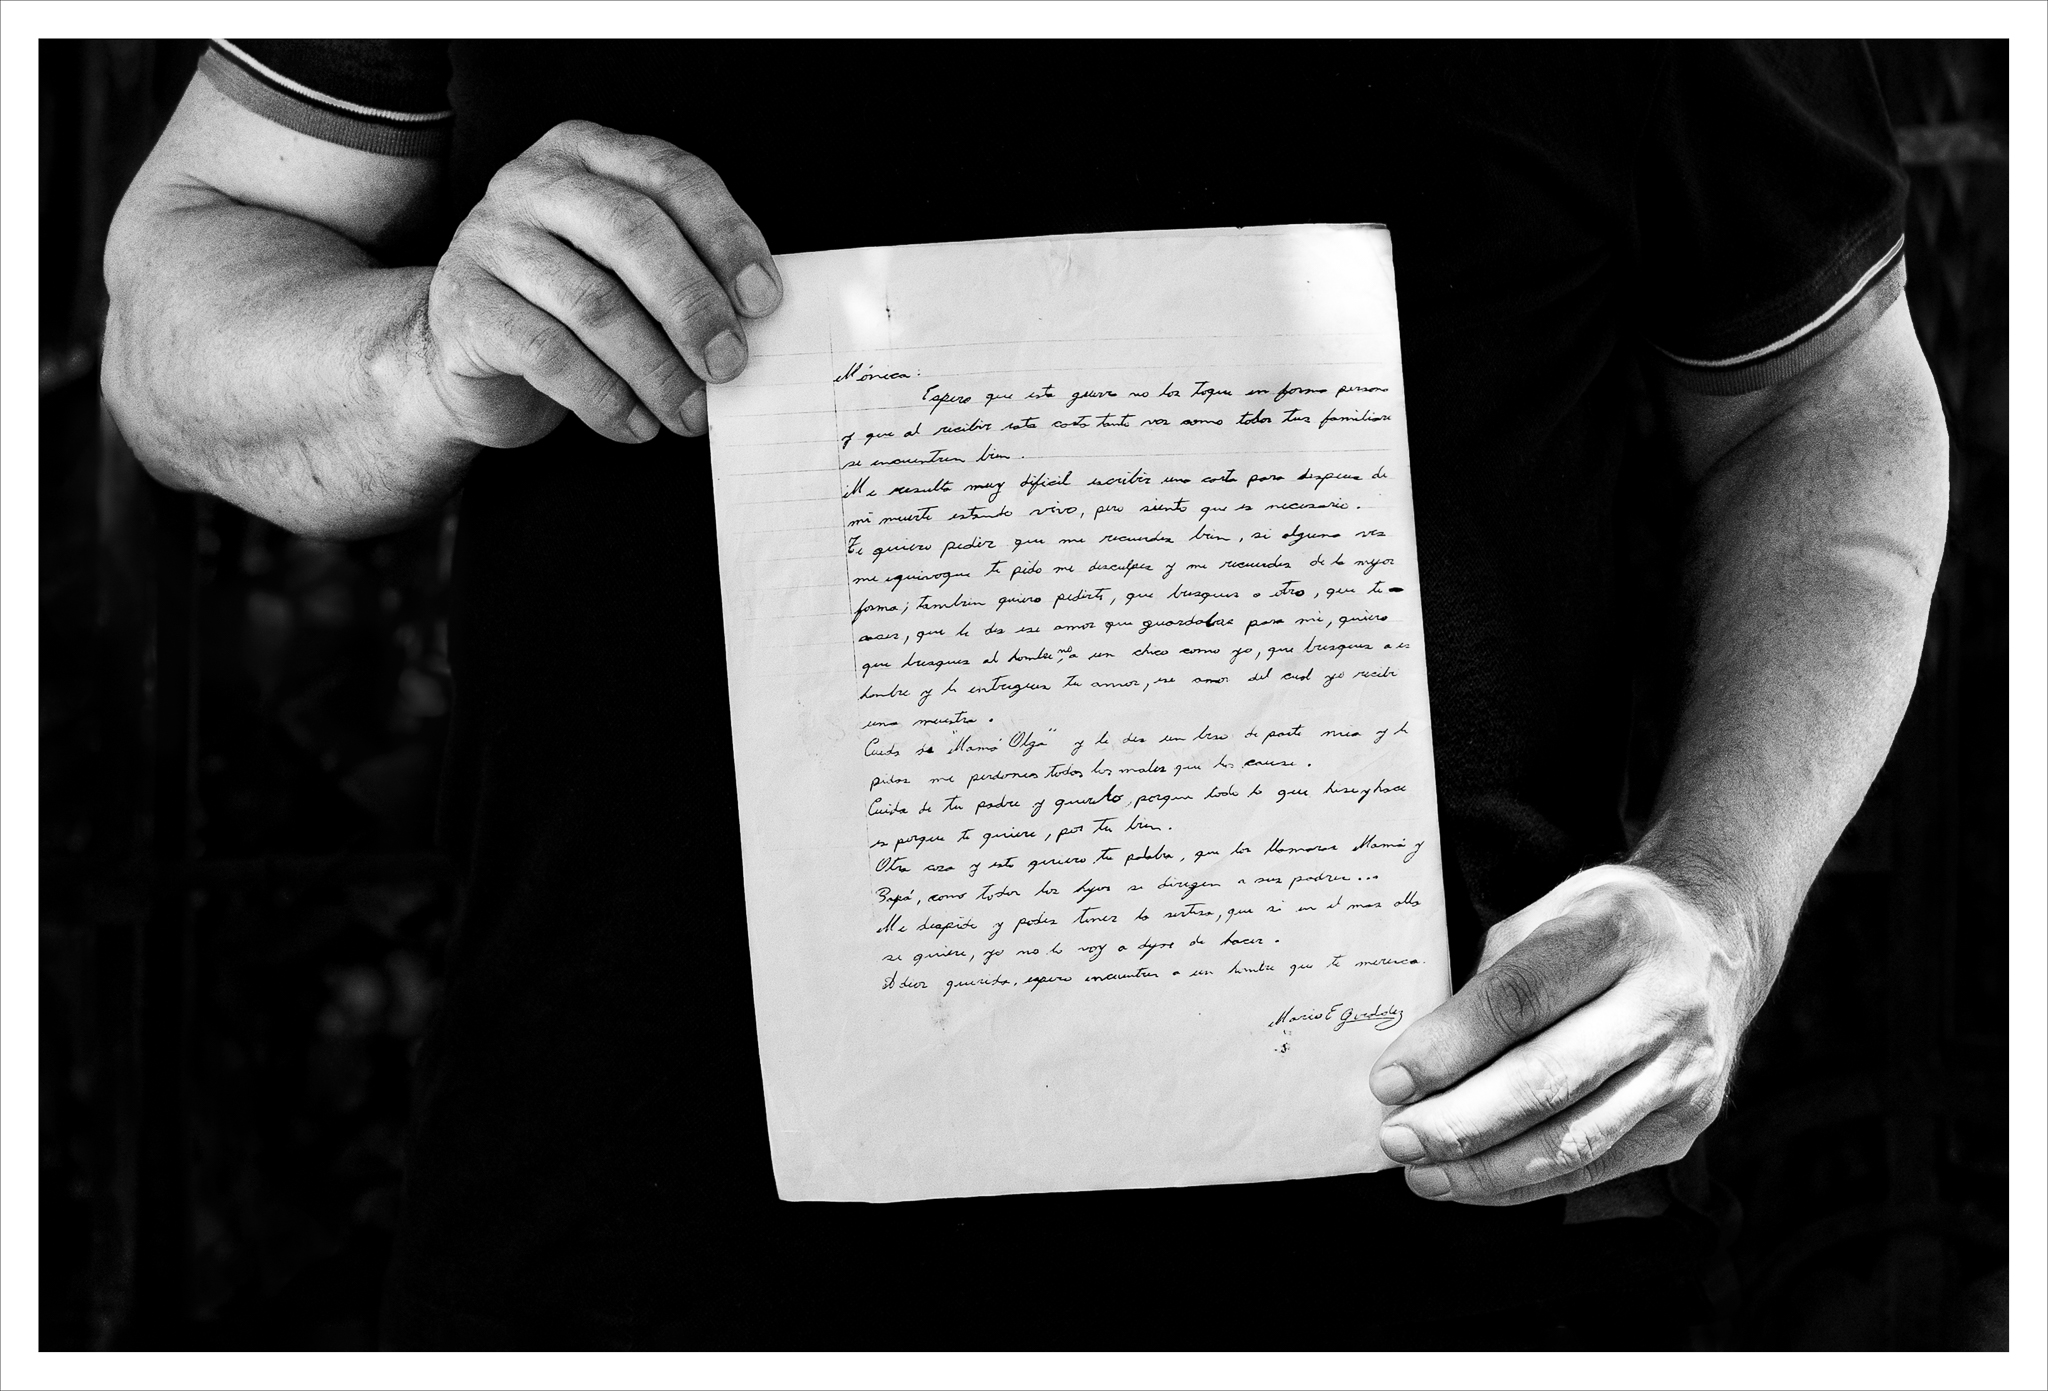 Mónica:
Espero que esta guerra no los toque en forma persona
y que al recibir esta carta tanto vos como todos tus familiare
se encuentren bien.
Me resulta muy dificil escribir una carta para despues de
mi muerte estando vivo, pero siento que es necesario.
Te quiero pedir que me recuerdes bien, si alguna ves
me equivoque te pido me desculpes y me recuerdes de la mejor
forma; tambien quiero pedirte, que busques a otro, que te
cases, que le des ese amor que guardabas para mi, quiero
que busques al hombre, no a un chico como yo, que busques a es
hombre y le entregues tu amor, ese amor del cual yo recibi
una muestra.
Cuida de "Mamá Olga" y le des un beso de parte mia y le
pidas me perdones todos los males que les cause.
Cuida de tu padre y querelo, porque todo lo que hiso y hace
es porque te quiere, por tu bien.
Otra cosa y esto quiero tu palabra, que los llamaras Mamá y
Papá, como todos los hijos se dirigen a sus padres...
Me despido y podes tener la sertesa, que si en el mas alla
se quiere, yo no lo voy a dejar de hacer.
Adios querida, espero encuentres a un hombre que te meresca.
Mario E